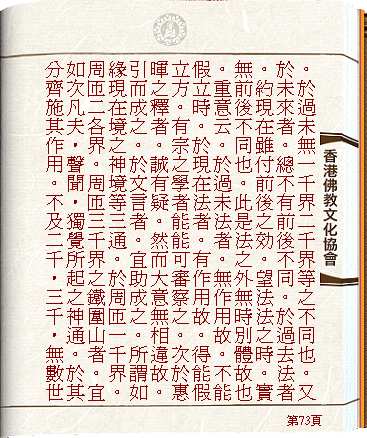 。於過未無一千界二千界等之不同也。又
於未來者。總不有前後不同。於過去法者
。約現在雖付前後之効。望法法之時。實
無前後不同也。此是法之外無時別體故也
。重意云。於過未法者。無作用故。不能
假立時。於現在法者。有作用故。得能假
立方。有宗之學者能能可審察之。次於惠
暉之釋者。誠有疑。然而大意無相違故。
引而成之。於文言者。宜助成之。所謂如
緣現在境之神境等三通。於周匝一千界。
周匝二各界。周匝三千界之鐵圍山者。宜
如次凡夫，聲聞，獨覺所起之神通。於其
分齊施其作用。不及二千，三千，無數世
香港佛教文化協會
第73頁